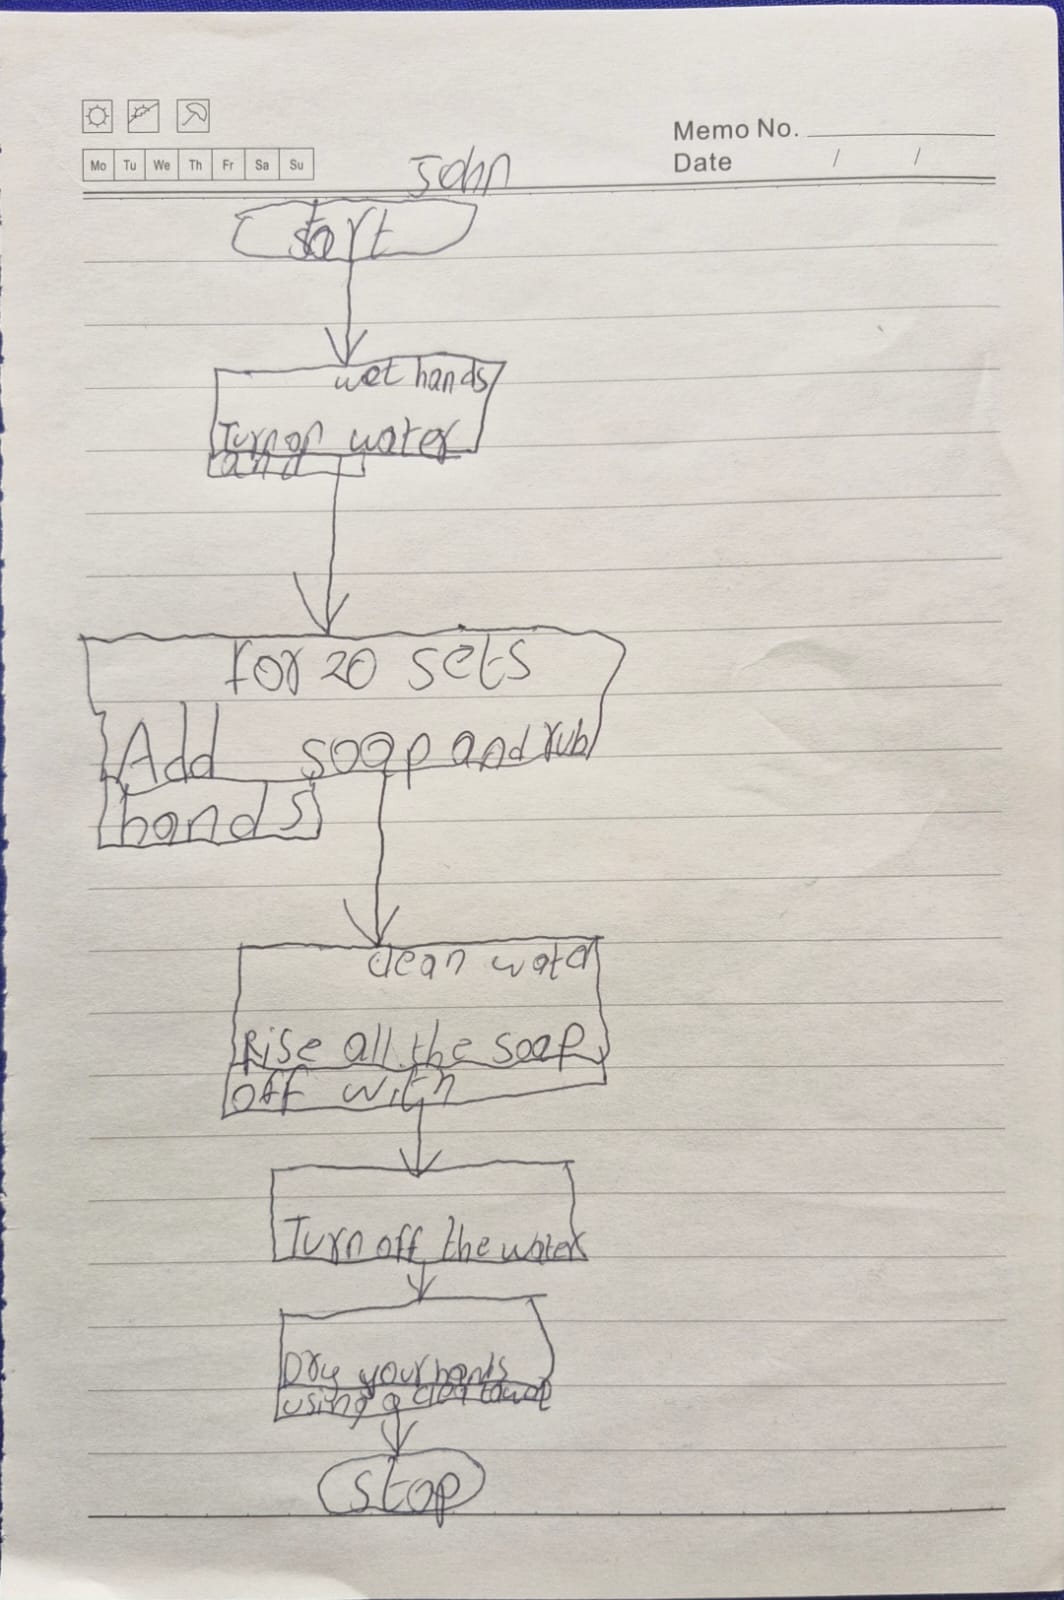 Memo No.
Date / /
Mo Tu We Th Fr Sa Su
John
start
wet hands
Turn on water
and
for 20 sets
Add soap and rub
hands
clean water
Rise all the soap
off with
Turn off the water
Dry your hands
using a
stop